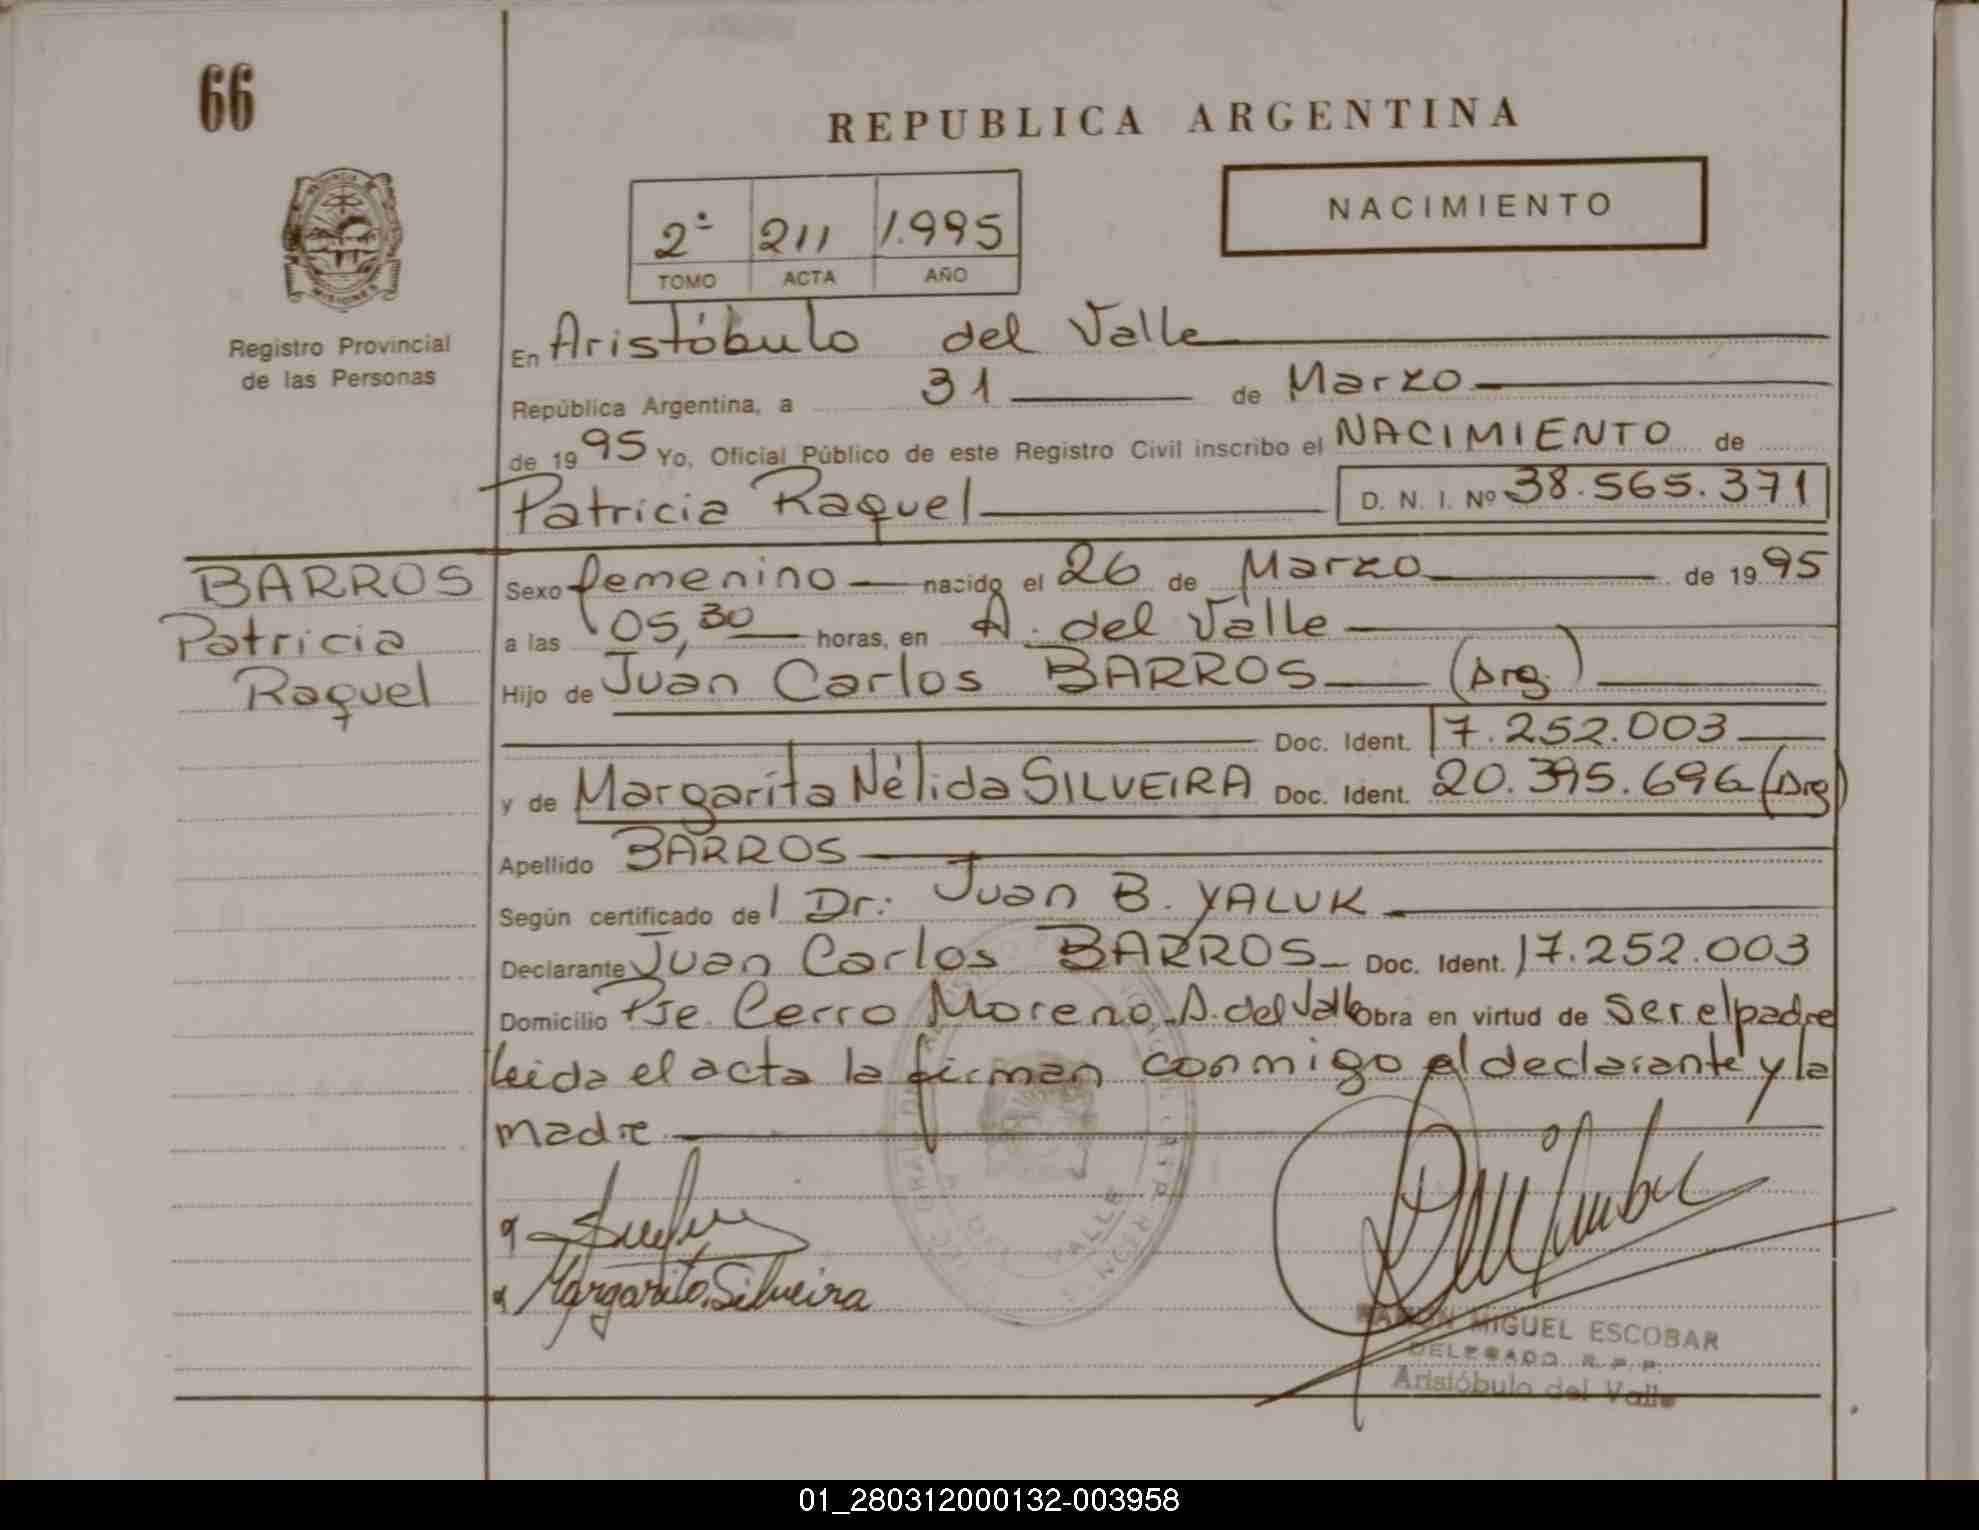 66
REPUBLICA ARGENTINA
NACIMIENTO
2º 211 1.995
TOMO ACTA AÑO
Registro Provincial
de las Personas
En Aristóbulo del Valle
República Argentina, a 31 de Marzo
de 1995 Yo, Oficial Público de este Registro Civil inscribo el NACIMIENTO de
Patricia Raquel D. N. I. Nº 38.565.371
BARROS
Patricia
Raquel
Sexo femenino nacido el 26 de Marzo de 1995
a las 05,30 horas, en A. del Valle
Hijo de Juan Carlos BARROS (Arg.)
Doc. Ident. 17.252.003
y de Margarita Nélida SILVEIRA Doc. Ident. 20.395.696 (Arg)
Apellido BARROS
Según certificado del Dr: Juan B. YALUK
Declarante Juan Carlos BARROS Doc. Ident. 17.252.003
Domicilio Pje. Cerro Moreno A. del Valle Obra en virtud de ser el padre
leida el acta la firman conmigo el declarante y la
madre
Margarita Silveira
RAMON MIGUEL ESCOBAR
DELEGADO R.P.P.
Aristóbulo del Valle
01_280312000132-003958